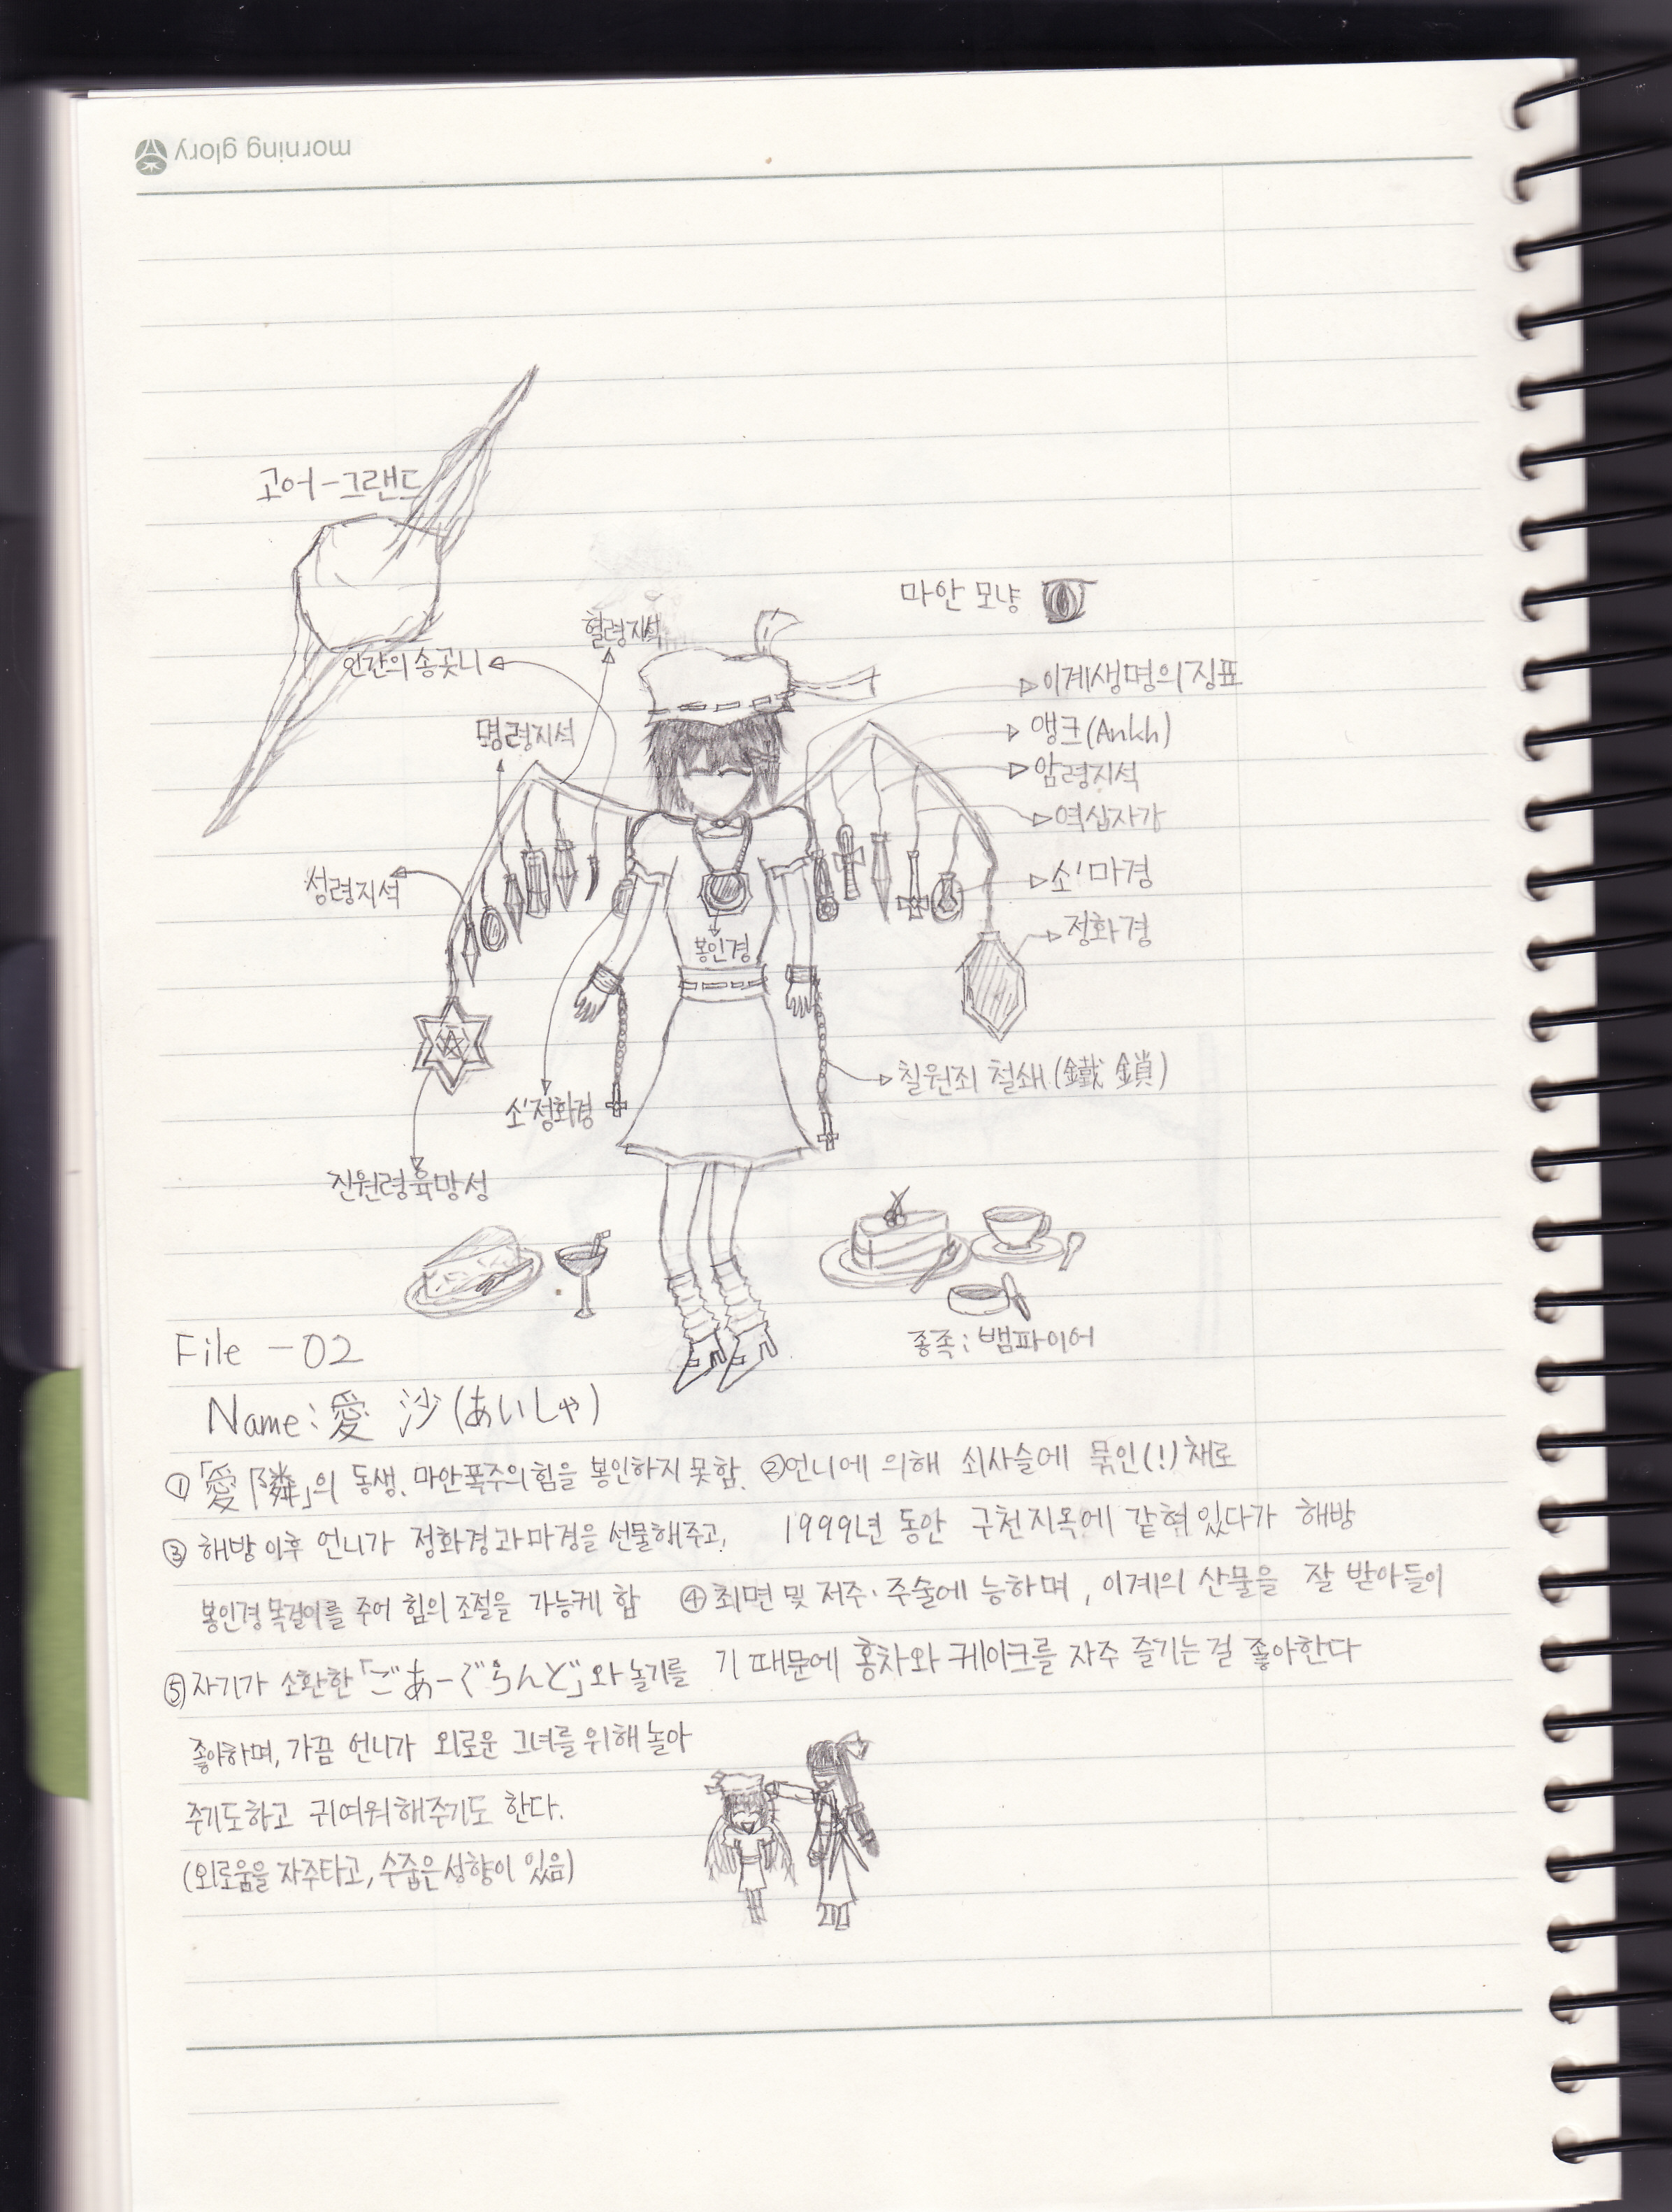 morning glory
고어-그랜드
마안 모냥
혈령지석
인간의 송곳니
이계생명의 징표
명령지석
앵크(Ankh)
암령지석
역십자가
성령지석
소' 마경
정화경
봉인경
칠원죄 철쇄(鐵鎖)
소'정화경
진원령육망성
종족: 뱀파이어
File -02
Name: 愛 沙(あいしゃ)
①「愛隣」의 동생. 마안폭주의 힘을 봉인하지 못함. ②언니에 의해 쇠사슬에 묶인(!) 채로
1999년 동안 구천지옥에 갇혀 있다가 해방
③ 해방 이후 언니가 정화경과 마경을 선물해주고,
봉인경 목걸이를 주어 힘의 조절을 가능케 함
④ 최면 및 저주·주술에 능하며, 이계의 산물을 잘 받아들이
기 때문에 홍차와 케이크를 자주 즐기는 걸 좋아한다
⑤ 자기가 소환한 「ごあーぐらんど」와 놀기를
좋아하며, 가끔 언니가 외로운 그녀를 위해 놀아
주기도하고 귀여워해주기도 한다.
(외로움을 자주타고, 수줍은 성향이 있음)